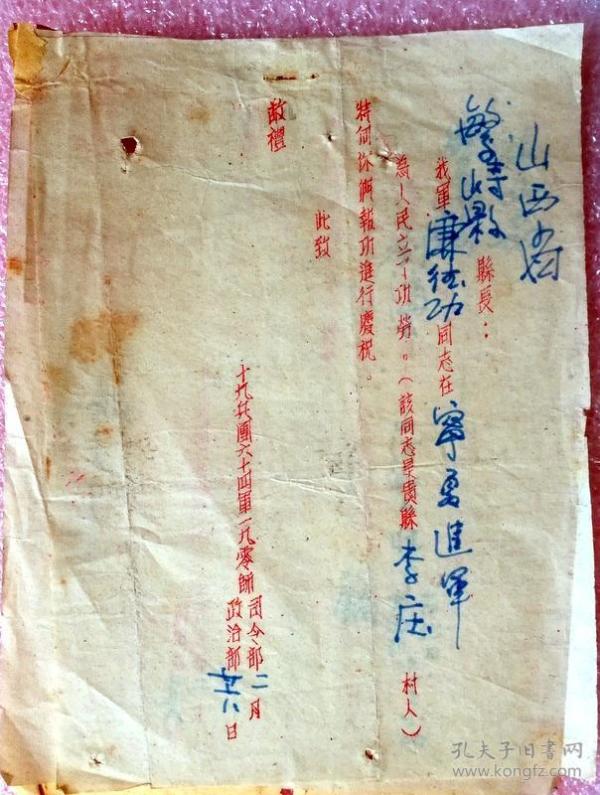 山西省
繁峙县縣長：
我軍康德功同志在寧夏進軍
為人民立了功勞。（該同志是貴縣李庄村人）
特向你們報功進行慶祝。
此致
敬禮
十九兵團六十四軍一九零師司令部
政治部
二月
廿八日
孔夫子旧書网
www.kongfz.com